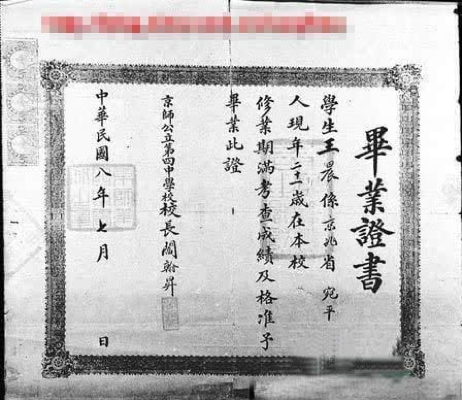 畢業證書
學生王晨係京兆省宛平
人現年二十一歲在本校
修業期滿考查成績及格准予
畢業此證
京師公立第四中學校校長閻翰昇
中華民國八年七月　日